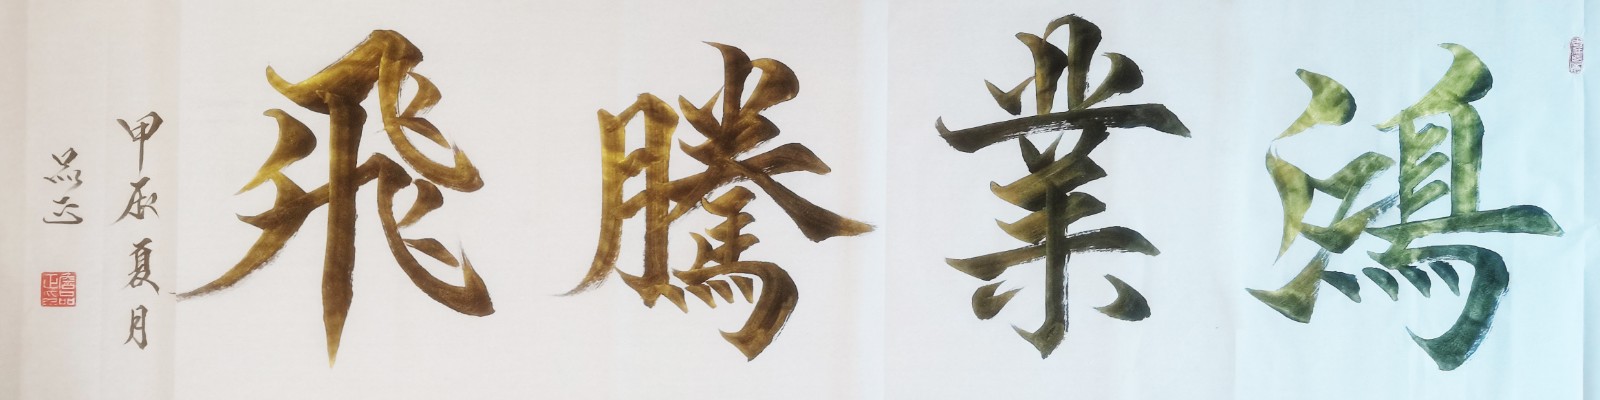 鴻業騰飛
甲辰夏月
品正